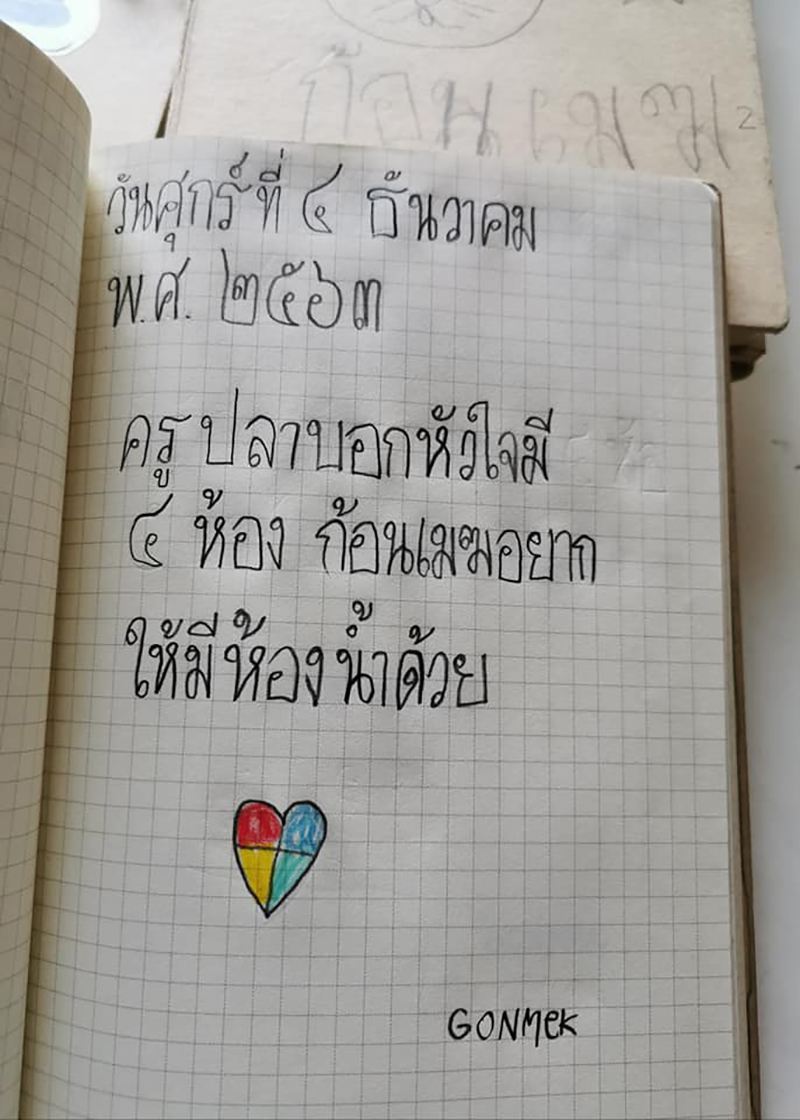 ก้อนเมฆ 2
วันศุกร์ที่ ๔ ธันวาคม
พ.ศ. ๒๕๖๓
ครูปลาบอกหัวใจมี
๔ ห้อง ก้อนเมฆอยาก
ให้มีห้องน้ำด้วย
GONMEK